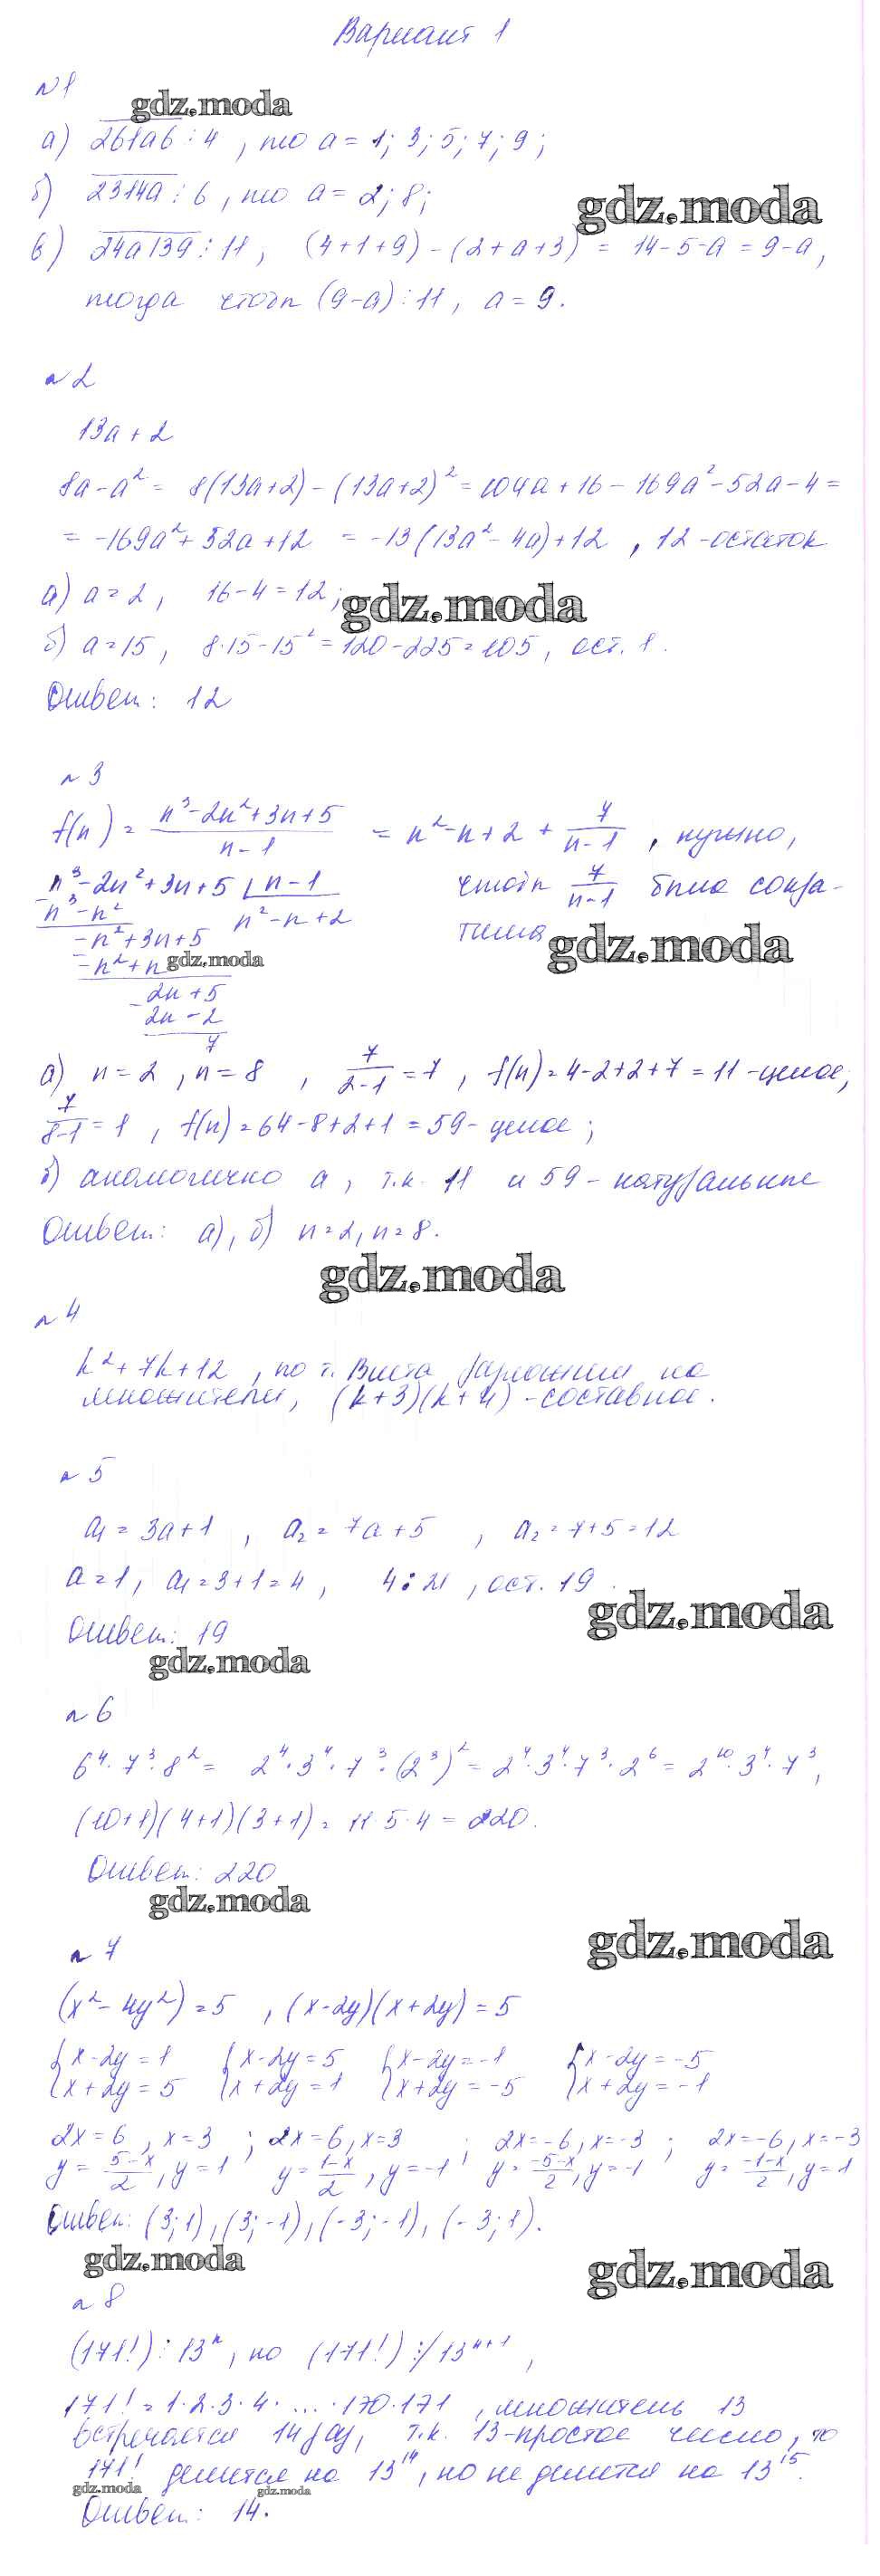 Вариант 1
№1
gdz.moda
а) 261аб ⋮ 4 , то а = 1; 3; 5; 7; 9;
б) 2314а ⋮ 6 , то а = 2; 8;
gdz.moda
в) 24а139 ⋮ 11 , (4+1+9) - (2+а+3) = 14-5-а = 9-а,
тогда чтоб (9-а) ⋮ 11 , а = 9.
№2
13а + 2
8а - а² = 8(13а+2) - (13а+2)² = 104а + 16 - 169а² - 52а - 4 =
= -169а² + 52а + 12 = -13(13а² - 4а) + 12 , 12 - остаток
а) а = 2 , 16 - 4 = 12 ;
gdz.moda
б) а = 15 , 8·15 - 15² = 120 - 225 = 105 , ост. 1.
Ответ: 12
№3
f(n) = (n³ - 2n² + 3n + 5)/(n - 1) = n² - n + 2 + 7/(n - 1) , нужно,
n³ - 2n² + 3n + 5 | n - 1 чтобы 7/(n-1) была сокра-
n³ - n² n² - n + 2 тима
-n² + 3n + 5 gdz.moda
-n² + n gdz.moda
2n + 5
2n - 2
7
а) n = 2 , n = 8 , 7/(2-1) = 7 , f(n) = 4-2+2+7 = 11 - целое,
7/(8-1) = 1 , f(n) = 64-8+2+1 = 59 - целое ;
б) аналогично а , т.к. 11 и 59 - натуральные
Ответ: а), б) n = 2, n = 8.
gdz.moda
№4
k² + 7k + 12 , по т. Виета разложим на
множители, (k+3)(k+4) - составное.
№5
а₁ = 3а + 1 , а₂ = 7а + 5 , а₂ = 7+5 = 12
а = 1 , а₁ = 3+1 = 4 , 4 : 21 , ост. 19
gdz.moda
Ответ: 19
gdz.moda
№6
6⁴ · 7³ · 8² = 2⁴ · 3⁴ · 7³ · (2³)² = 2⁴ · 3⁴ · 7³ · 2⁶ = 2¹⁰ · 3⁴ · 7³ ,
(10+1)(4+1)(3+1) = 11·5·4 = 220.
Ответ: 220
gdz.moda
gdz.moda
№7
(x² - 4y²) = 5 , (x-2y)(x+2y) = 5
{x-2y = 1 {x-2y = 5 {x-2y = -1 {x-2y = -5
{x+2y = 5 {x+2y = 1 {x+2y = -5 {x+2y = -1
2x = 6 , x = 3 ; 2x = 6 , x = 3 ; 2x = -6, x = -3 ; 2x = -6, x = -3
y = (5-x)/2 , y = 1 y = (1-x)/2 , y = -1 y = (-5-x)/2 , y = -1 y = (-1-x)/2 , y = 1
Ответ: (3; 1), (3; -1), (-3; -1), (-3; 1).
gdz.moda
gdz.moda
№8
(171!) ⋮ 13ⁿ , но (171!) ⋮/ 13ⁿ⁺¹ ,
171! = 1·2·3·4· ... ·170·171 , множитель 13
встречается 14 раз, т.к. 13 - простое число, то
171! делится на 13¹⁴ , но не делится на 13¹⁵.
gdz.moda gdz.moda
Ответ: 14.